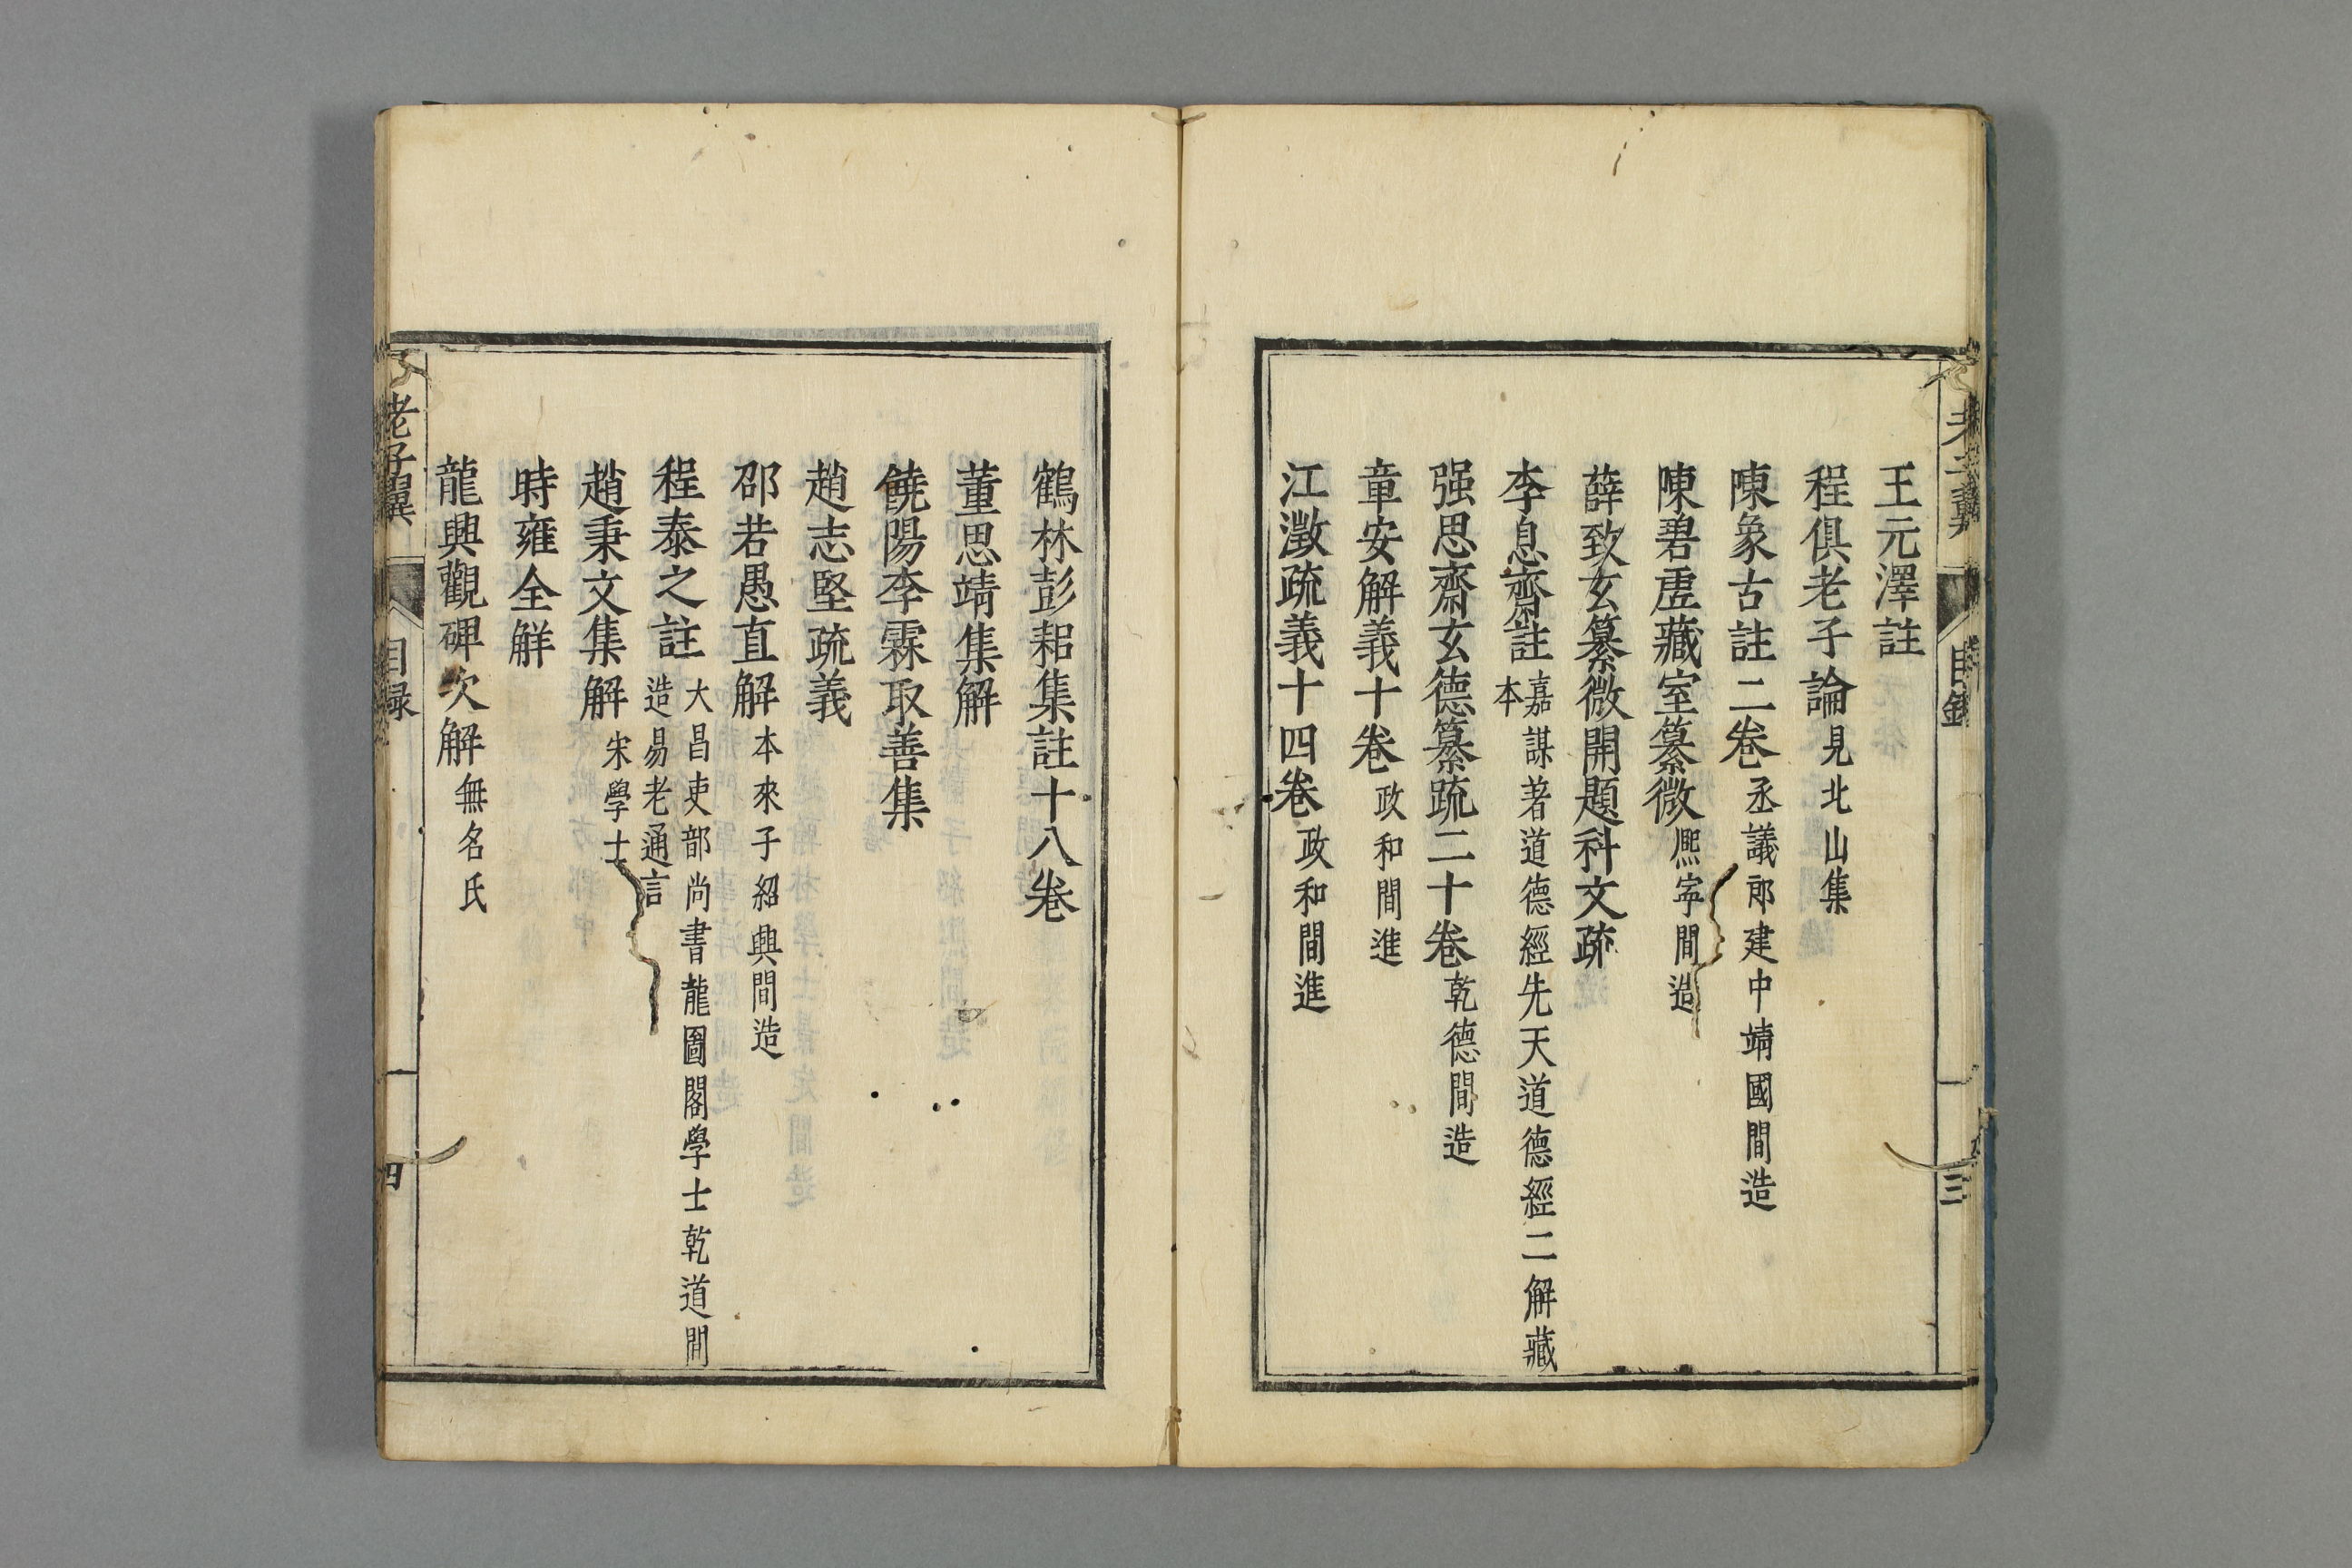 老子翼 目錄 三
王元澤註
程俱老子論見北山集
陳象古註二卷丞議郎建中靖國間造
陳碧虛藏室纂微熈寧間造
薛致玄纂微開題科文疏
李息齋註嘉謀著道德經先天道德經二解藏
本
强思齋玄德纂疏二十卷乾德間造
章安解義十卷政和間進
江澂疏義十四卷政和間進
鶴林彭耜集註十八卷
董思靖集解
饒陽李霖取善集
趙志堅疏義
邵若愚直解本來子紹興間造
程泰之註大昌吏部尚書龍圖閣學士乾道間
造易老通言
趙秉文集解宋學士
時雍全解
龍興觀碑次解無名氏
老子翼 目録 四